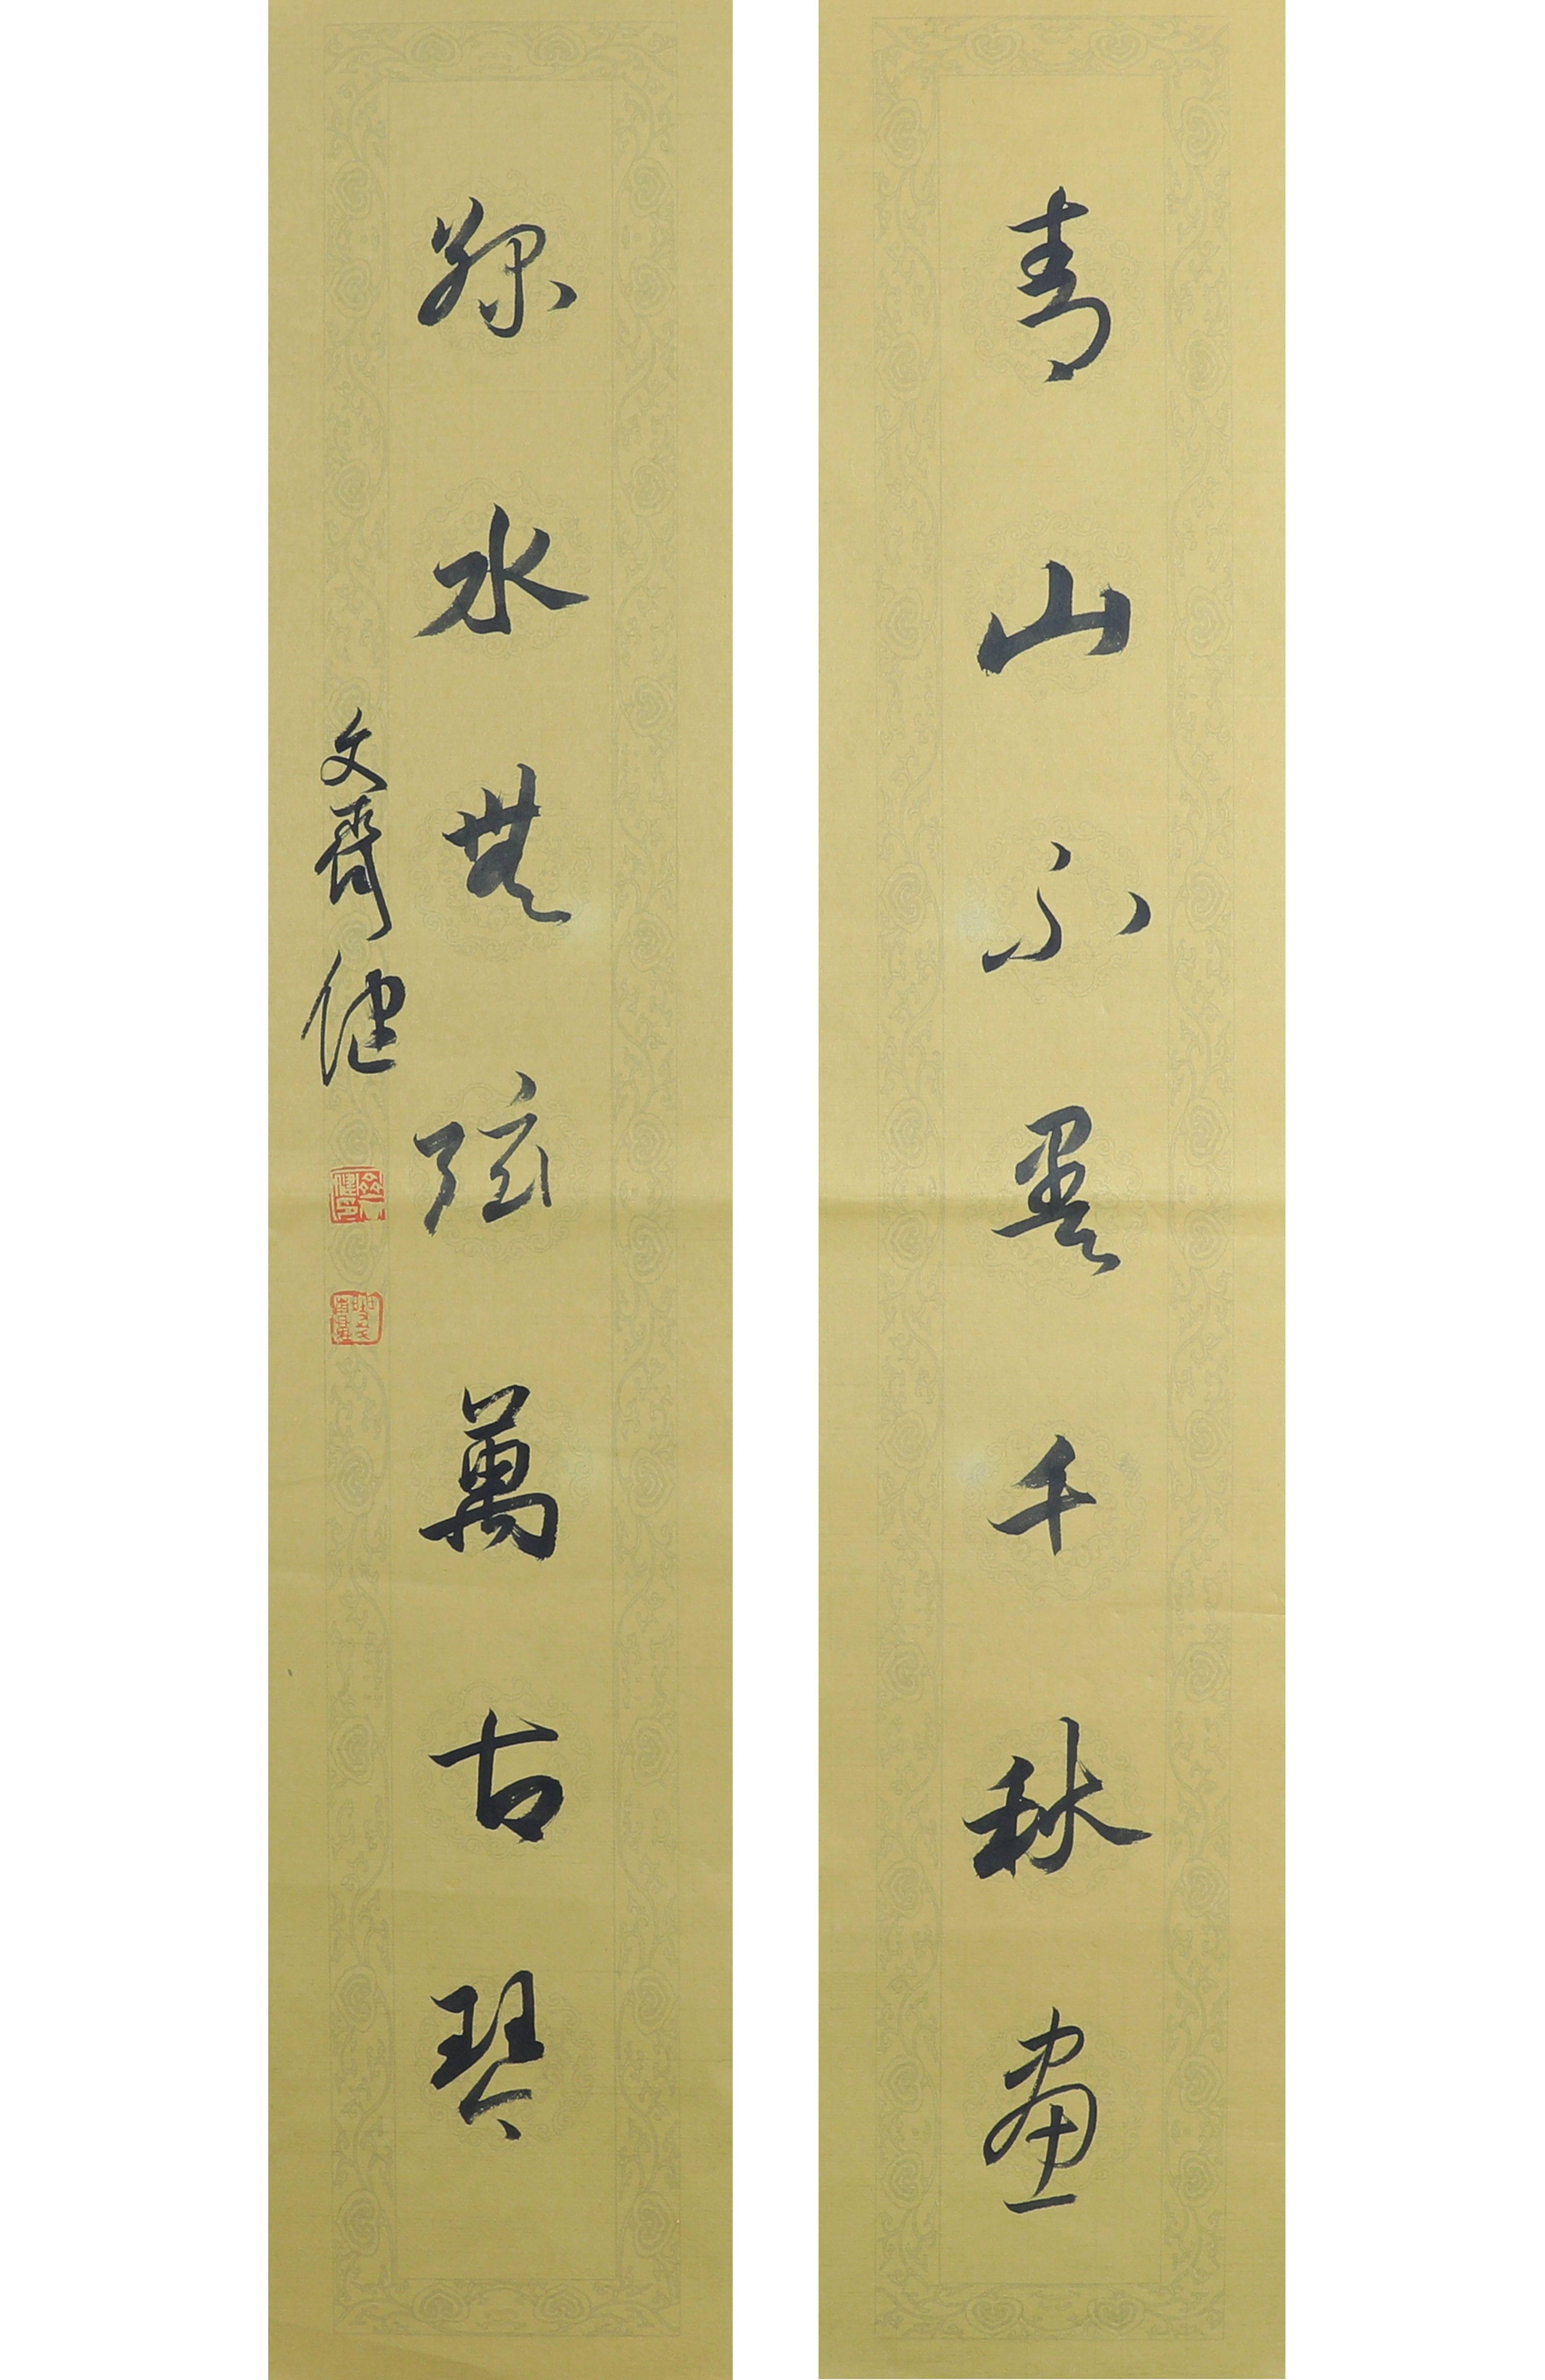 青山不墨千秋畫
綠水無弦萬古琴
文齊健